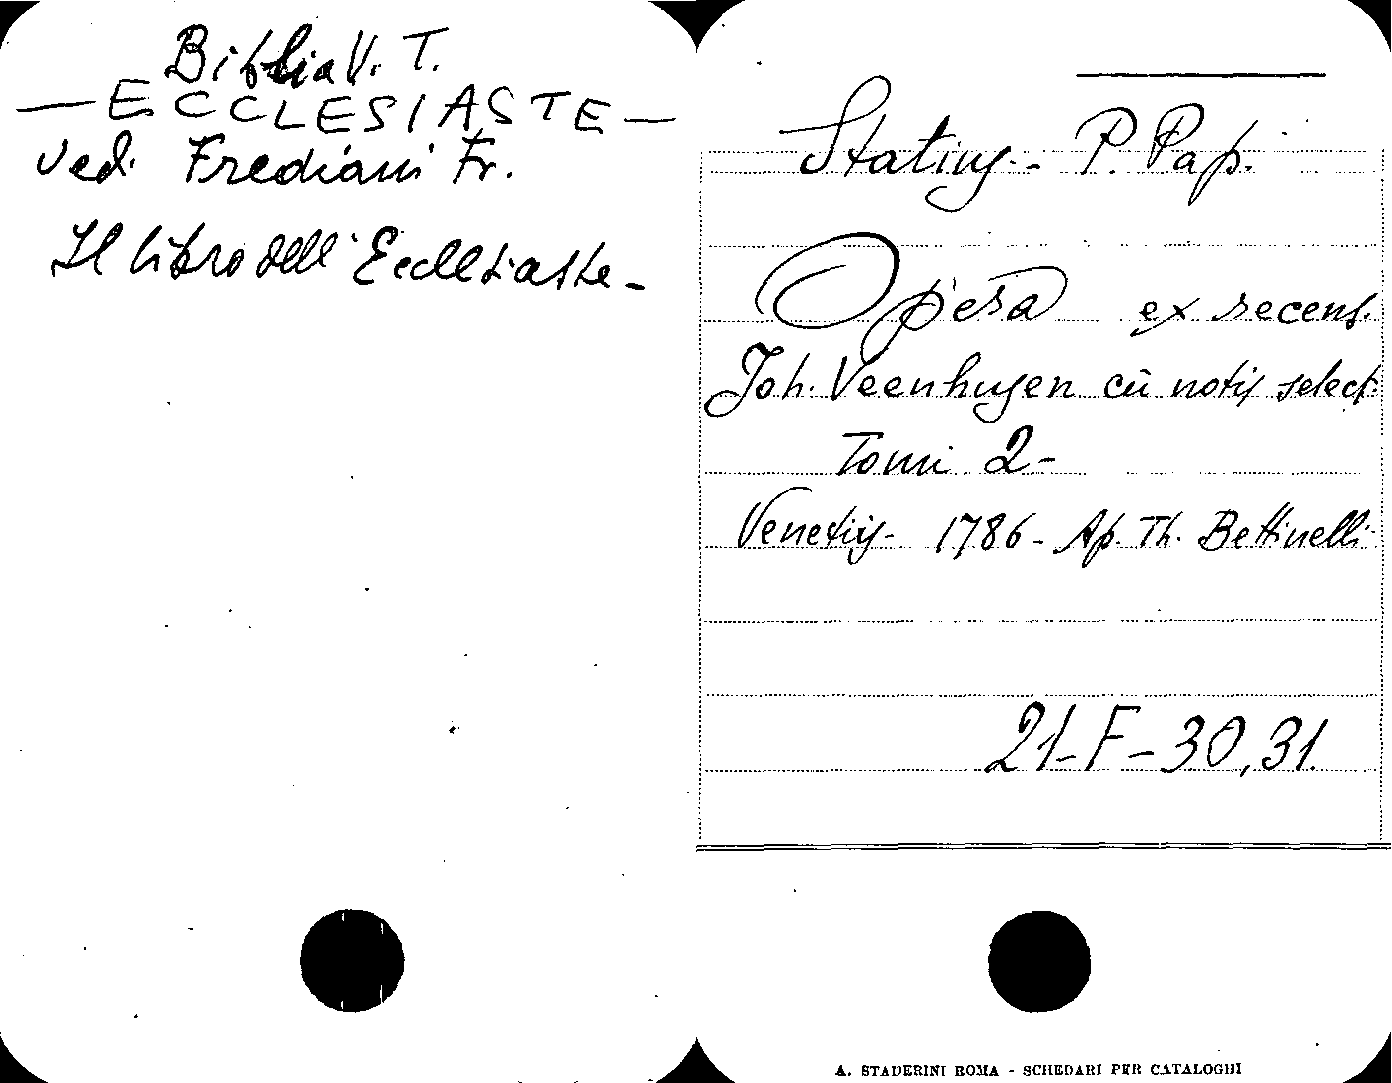 Biblia V. T.
— ECCLESIASTE —
ved. Frediani Fr.
Il libro dell' Ecclesiaste -
Statius - P. Pap.
Opera ex recens.
Joh. Veenhusen cū notis select.
Tomi 2 -
Venetiis - 1786 - Ap. Th. Bettinelli
21-F-30,31.
A. STADERINI ROMA - SCHEDARI PER CATALOGHI